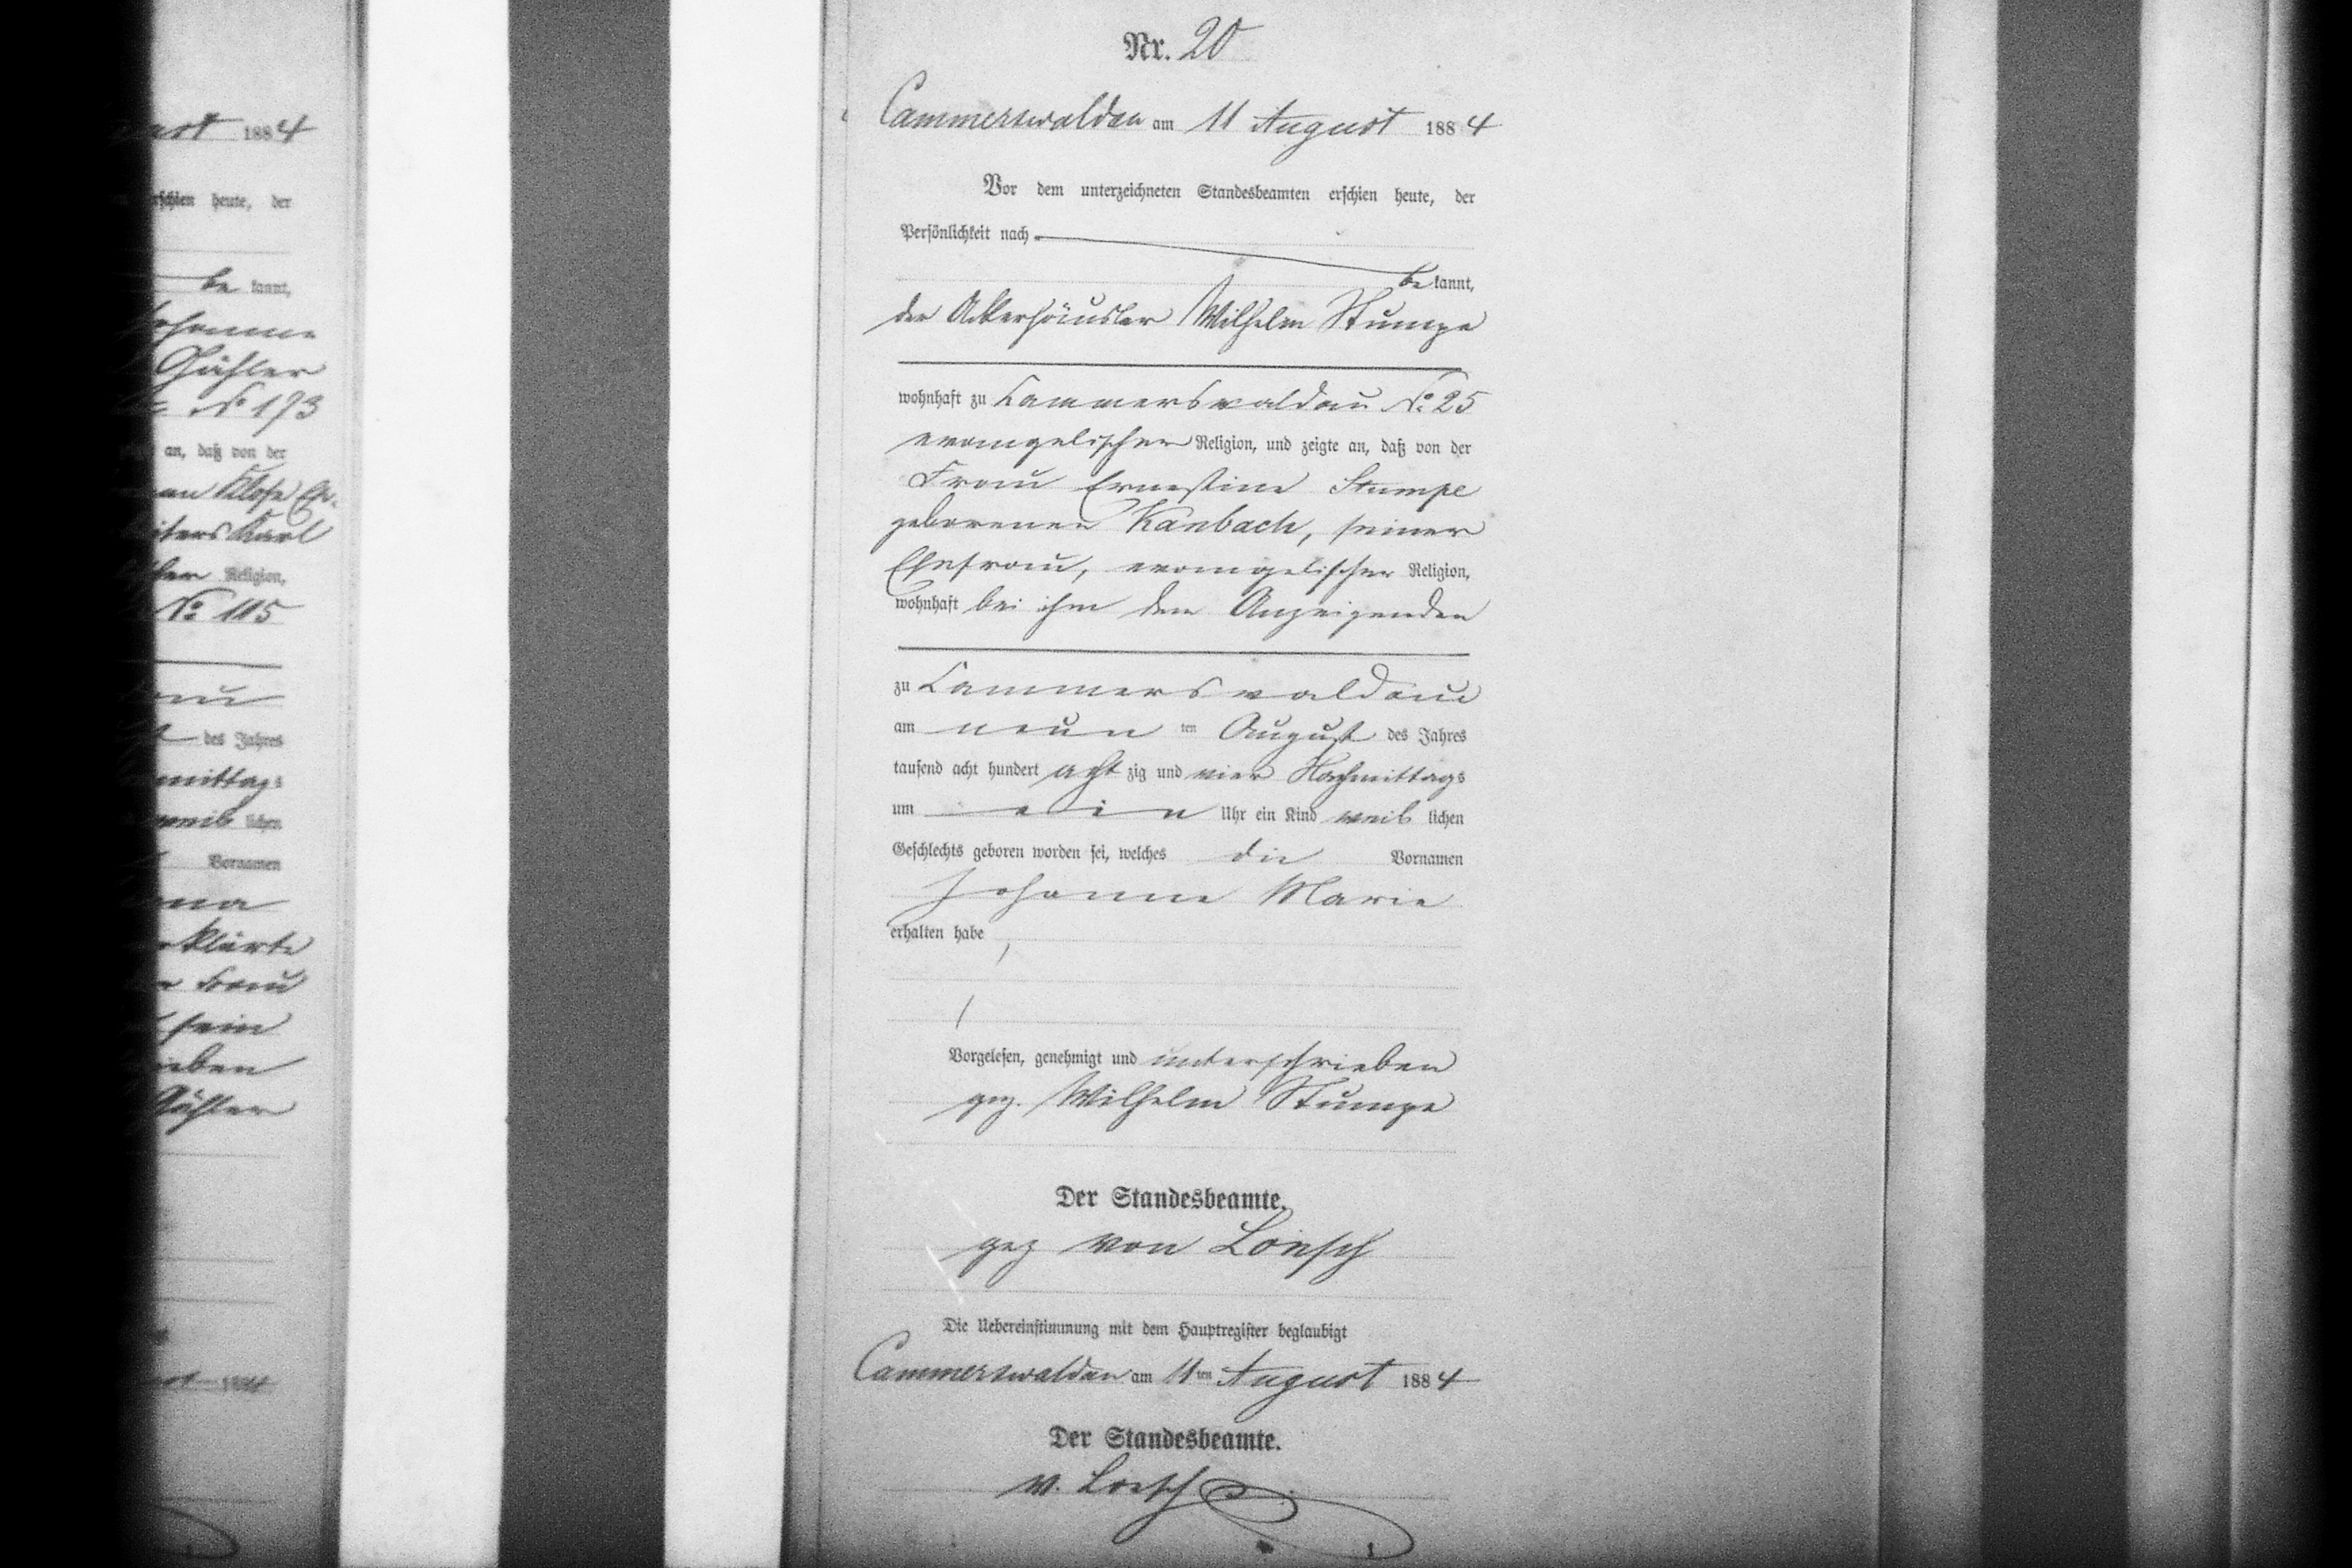 ast 1884
erschien heute, der
be kannt,
Johanne
Gähler
No 173
an, daß von der
Klose
Karl
Religion,
No 115
des Jahres
mittags
weib lichen
Vornamen
klärte
Frau
sein
Gähler
Nr. 20
Cammerswaldau am 11 August 1884
Vor dem unterzeichneten Standesbeamten erschien heute, der
Persönlichkeit nach
be kannt,
der Ackerhäusler Wilhelm Stumpe
wohnhaft zu Cammerswaldau No 25
evangelischer Religion, und zeigte an, daß von der
Frau Ernestine Stumpe
geborenen Kanbach, seiner
Ehefrau, evangelischer Religion,
wohnhaft bei ihm dem Anzeigenden
zu Cammerswaldau
am neun ten August des Jahres
tausend acht hundert acht zig und vier Nachmittags
um ein Uhr ein Kind weib lichen
Geschlechts geboren worden sei, welches die Vornamen
Johanne Marie
erhalten habe
Vorgelesen, genehmigt und unterschrieben
gez. Wilhelm Stumpe
Der Standesbeamte.
gez von Loesch
Die Uebereinstimmung mit dem Hauptregister beglaubigt
Cammerswaldau am 11ten August 1884
Der Standesbeamte.
v. Loesch